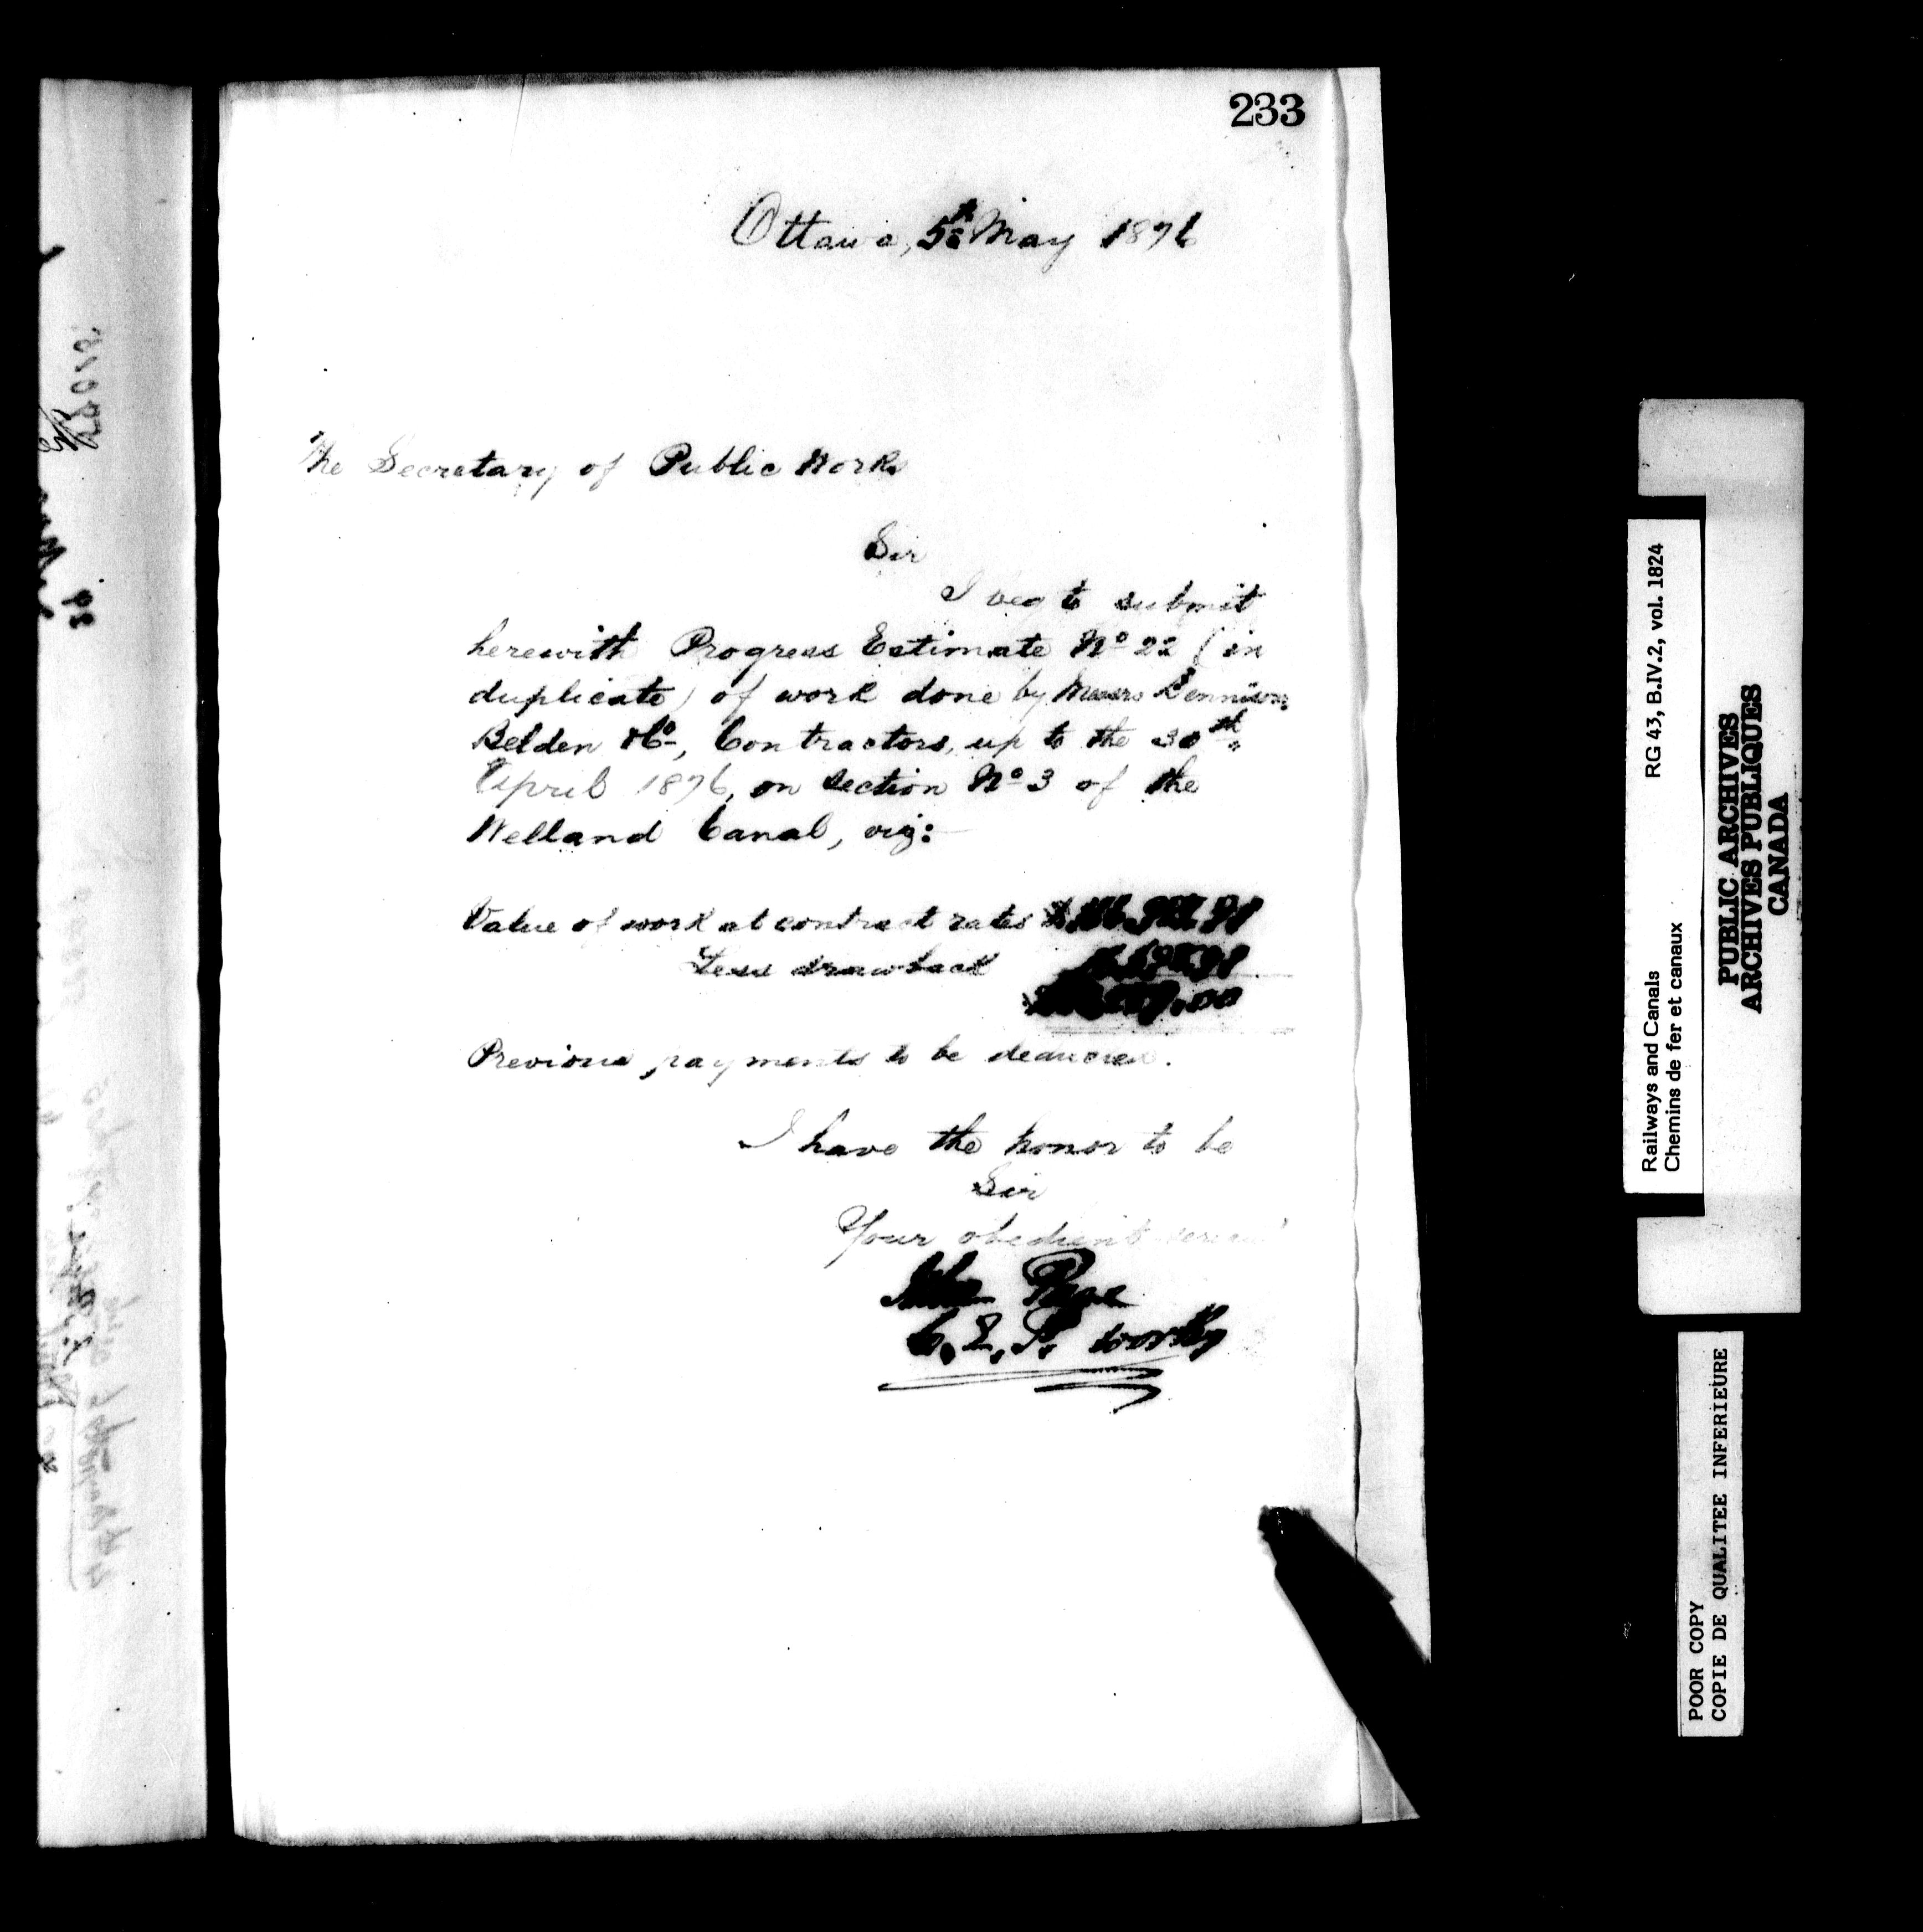 233
Ottawa, 5th May 1876
The Secretary of Public Works
Sir
I beg to submit
herewith Progress Estimate No 22 (in
duplicate) of work done by Messrs Dennison,
Belden & Co, Contractors, up to the 30th
April 1876, on section No 3 of the
Welland Canal, viz:
Value of work at contract rates $
Less drawback
Previous payments to be deducted.
I have the honor to be
Sir
Your obedient servant
John Page
C. E. P. Works
Railways and Canals RG 43, B.IV.2, vol. 1824
Chemins de fer et canaux
PUBLIC ARCHIVES
ARCHIVES PUBLIQUES
CANADA
POOR COPY
COPIE DE QUALITEE INFERIEURE